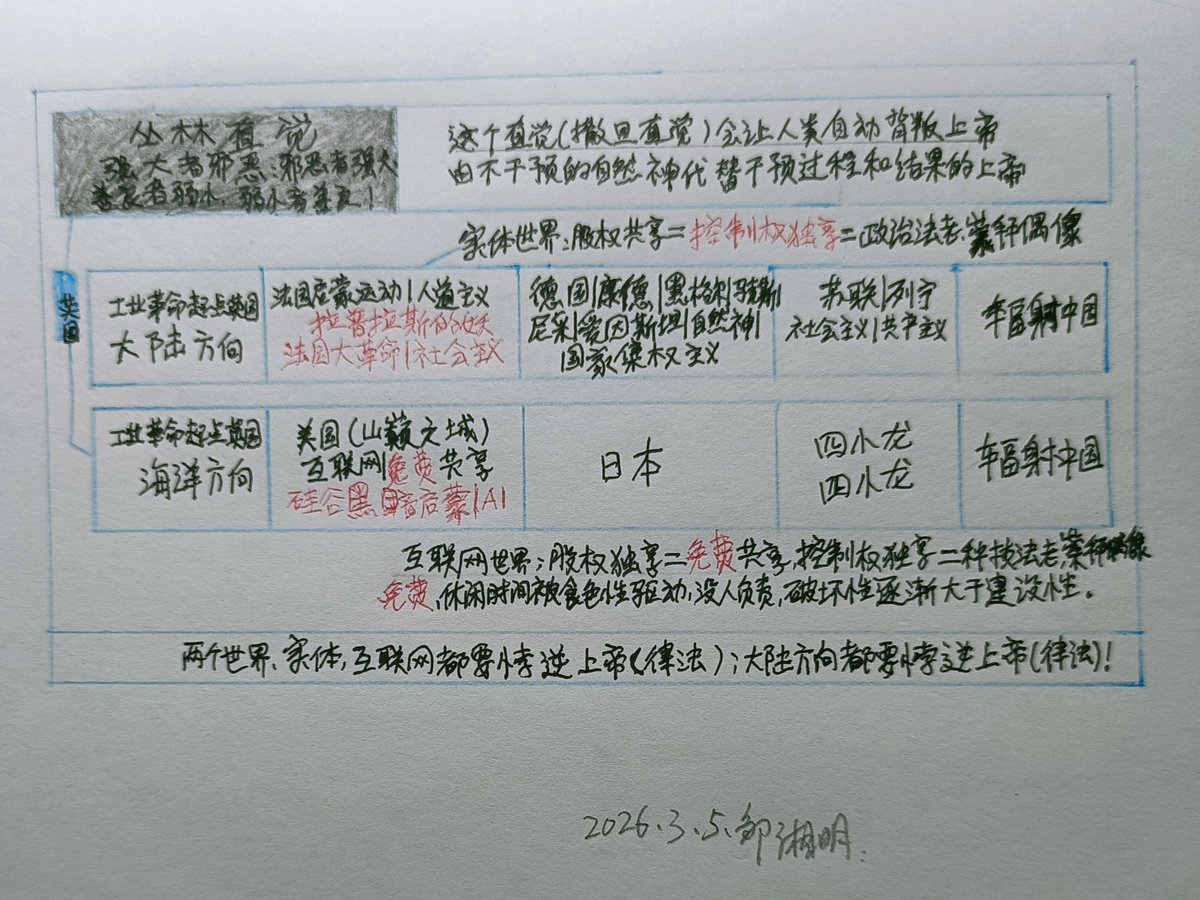 丛林直觉
强大者邪恶;邪恶者强大
善良者弱小,弱小者善良!
这个直觉(撒旦直觉)会让人类自动背叛上帝
由不干预的自然神代替干预过程和结果的上帝
实体世界:股权共享=控制权独享=政治法老、蒙种偶像
英国
工业革命起点英国
大陆方向
法国启蒙运动|人道主义
拉普拉斯的妖
法国大革命|社会主义
德国|康德|黑格尔|马克思|
尼采|爱因斯坦|自然神|
国家集权主义
苏联|列宁
社会主义|共产主义
辐射中国
工业革命起点英国
海洋方向
美国(山巅之城)
互联网免费共享
硅谷黑暗启蒙|AI
日本
四小龙
四小龙
辐射中国
互联网世界:股权独享=免费共享,控制权独享=种技法老、
免费,休闲时间被食色性驱动,没人负责,破坏性逐渐大于建设性。
两个世界、实体,互联网都要悖逆上帝(律法);大陆方向都要悖逆上帝(律法)!
2026.3.5.邹湘明.